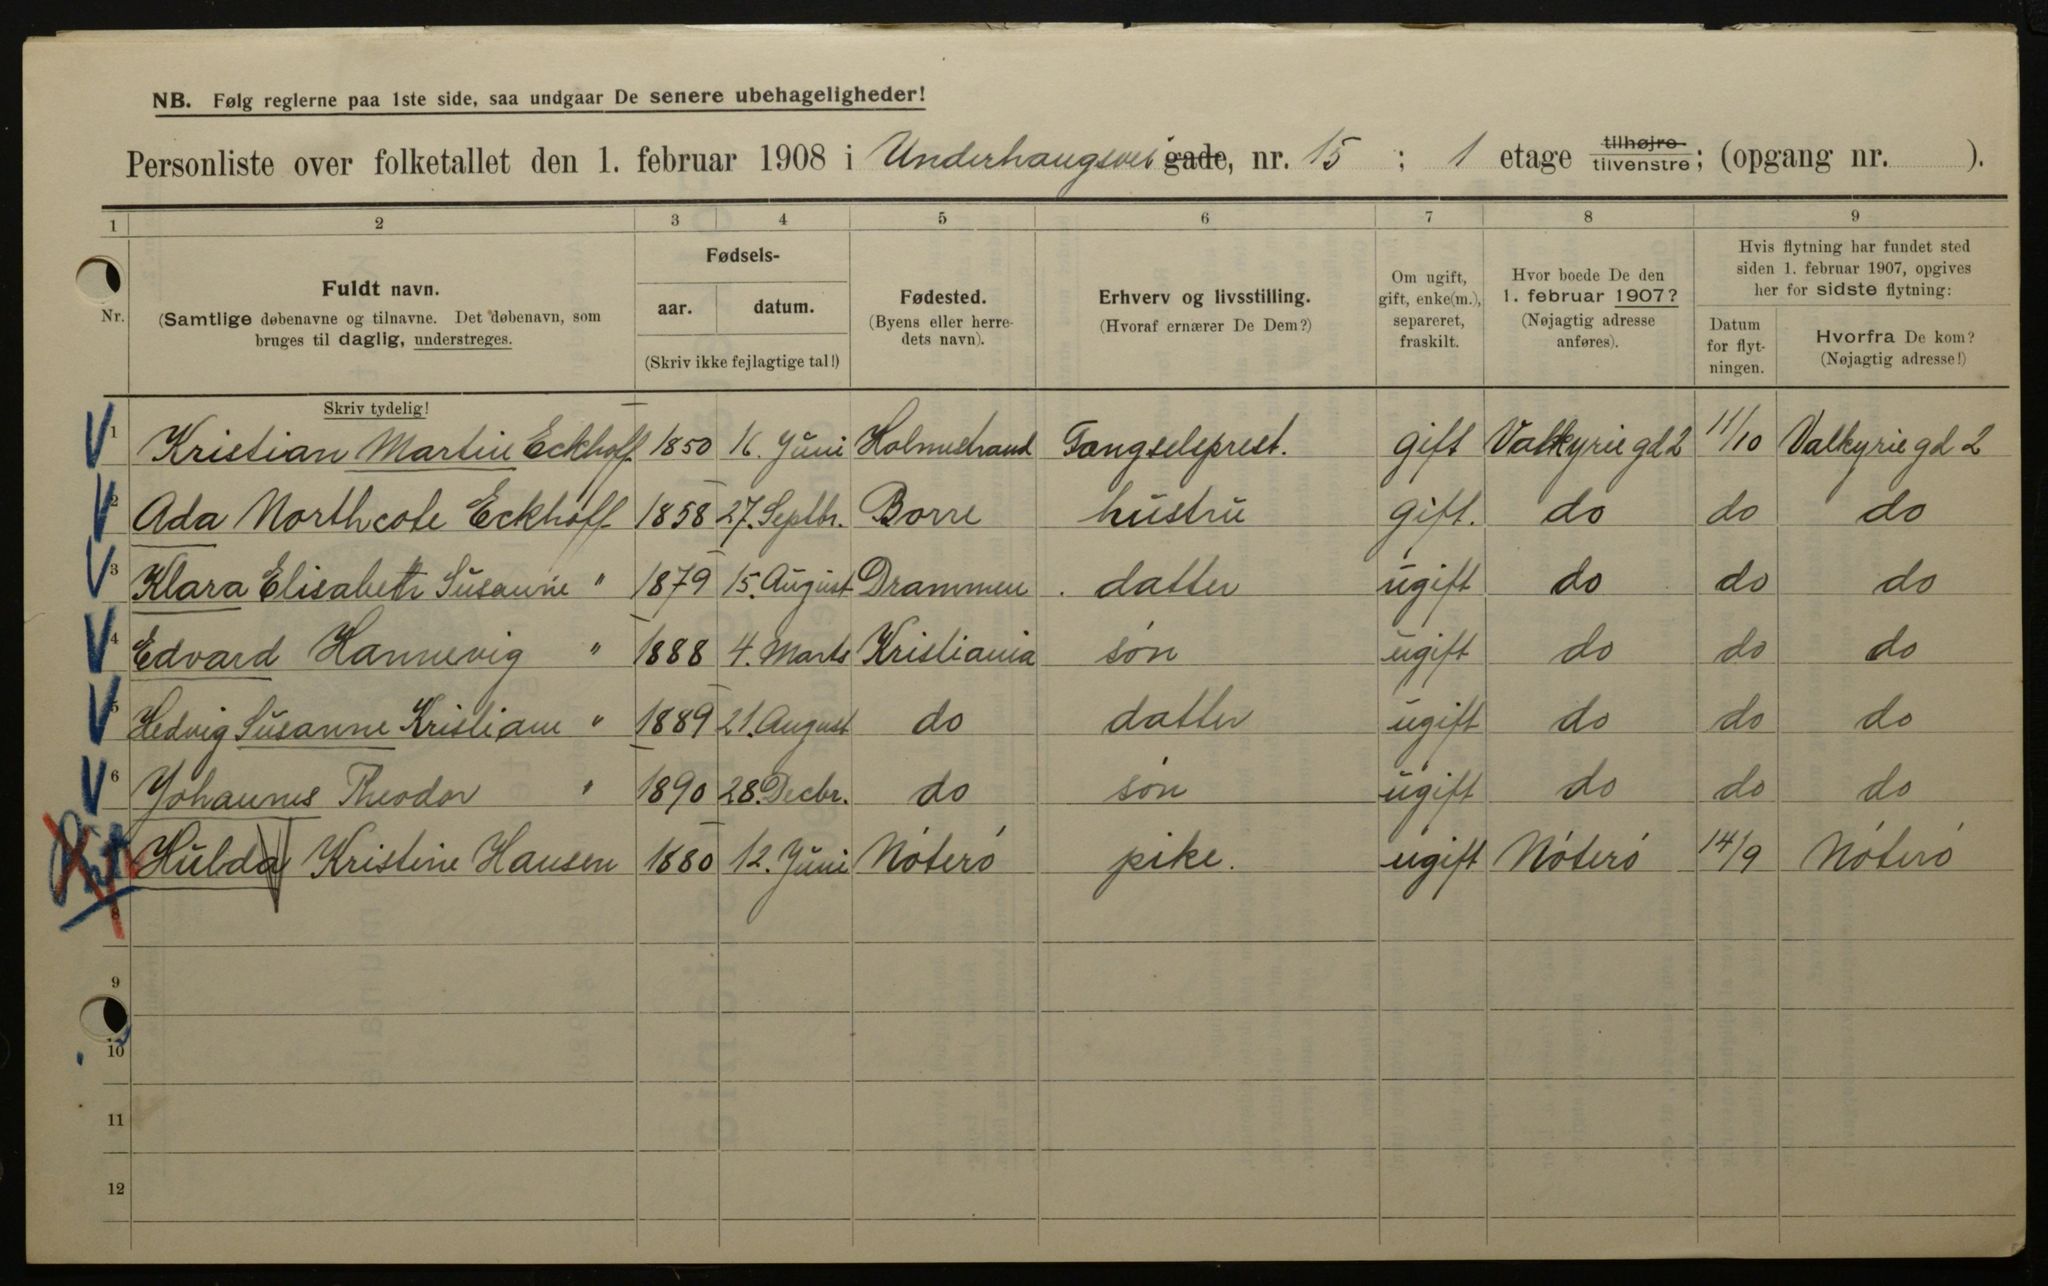 NB. Følg reglerne paa 1ste side, saa undgaar De senere ubehageligheder!
Personliste over folketallet den 1. februar 1908 i Underhaugsvei gade, nr. 15 ; 1 etage tilhøjre tilvenstre; (opgang nr. ).
1 2 3 4 5 6 7 8 9
Nr.
Fuldt navn.
(Samtlige døbenavne og tilnavne. Det døbenavn, som
bruges til daglig, understreges.
Skriv tydelig!
Fødsels-
aar. datum.
(Skriv ikke fejlagtige tal!)
Fødested.
(Byens eller herre-
dets navn).
Erhverv og livsstilling.
(Hvoraf ernærer De Dem?)
Om ugift,
gift, enke(m.),
separeret,
fraskilt.
Hvor boede De den
1. februar 1907?
(Nøjagtig adresse
anføres).
Hvis flytning har fundet sted
siden 1. februar 1907, opgives
her for sidste flytning:
Datum
for flyt-
ningen.
Hvorfra De kom?
(Nøjagtig adresse!)
1 Kristian Martin Eckhoff 1850 16. Juni Holmestrand Fangselsprest. gift Valkyrie gd 2 11/10 Valkyrie gd 2
2 Ada Northcote Eckhoff 1858 27. Septbr. Borre hustru gift. do do do
3 Klara Elisabeth Susanne " 1879 15. August Drammen datter ugift do do do
4 Edvard Hannevig " 1888 4. Marts Kristiania søn ugift do do do
5 Hedvig Susanne Kristiane " 1889 21. August do datter ugift do do do
6 Johannes Theodor " 1890 28. Decbr. do søn ugift do do do
Hulda Kristine Hansen 1880 12. Juni Nóteró pike. ugift Nóteró 14/9 Nóteró
8
9
10
11
12